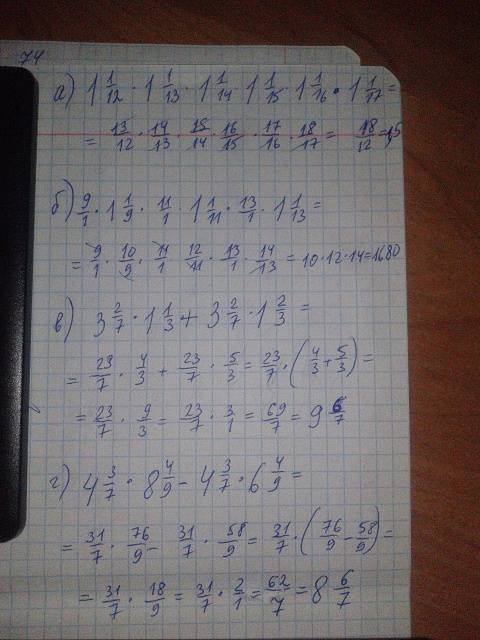 74
а) 1 1/12 · 1 1/13 · 1 1/14 · 1 1/15 · 1 1/16 · 1 1/17 =
= 13/12 · 14/13 · 15/14 · 16/15 · 17/16 · 18/17 = 18/12 = 1,5
б) 9/1 · 1 1/9 · 11/1 · 1 1/11 · 13/1 · 1 1/13 =
= 9/1 · 10/9 · 11/1 · 12/11 · 13/1 · 14/13 = 10·12·14=1680
в) 3 2/7 · 1 1/3 + 3 2/7 · 1 2/3 =
= 23/7 · 4/3 + 23/7 · 5/3 = 23/7 · (4/3 + 5/3) =
= 23/7 · 9/3 = 23/7 · 3/1 = 69/7 = 9 6/7
г) 4 3/7 · 8 4/9 - 4 3/7 · 6 4/9 =
= 31/7 · 76/9 - 31/7 · 58/9 = 31/7 · (76/9 - 58/9) =
= 31/7 · 18/9 = 31/7 · 2/1 = 62/7 = 8 6/7